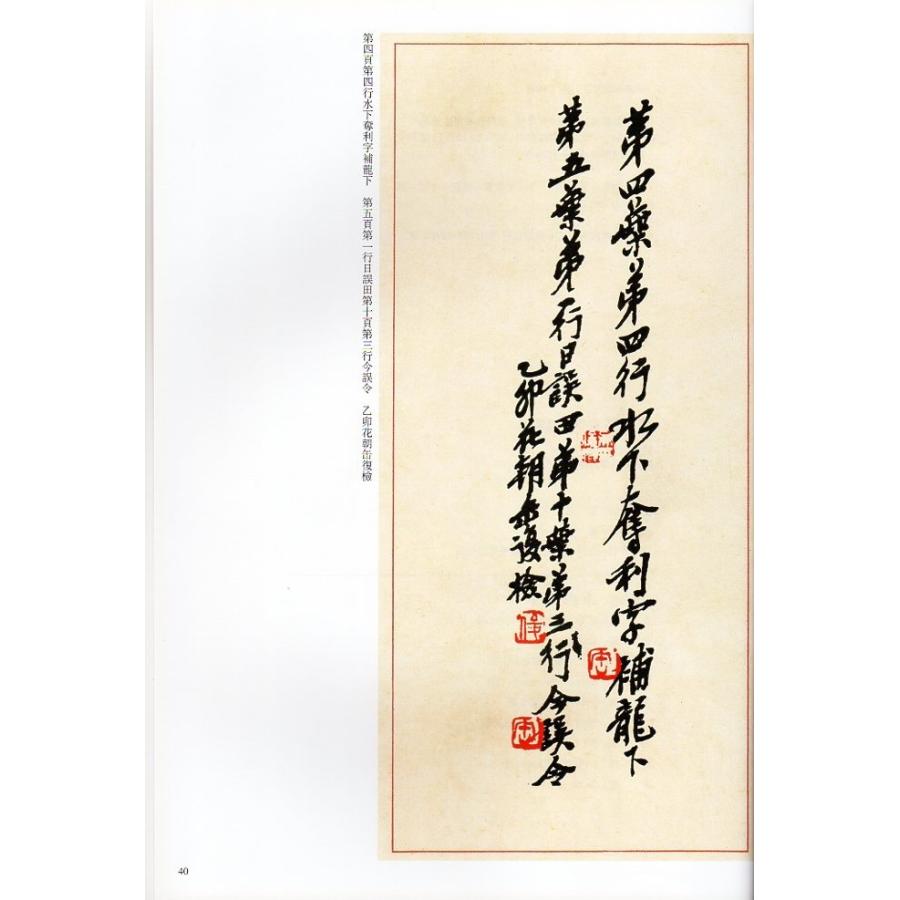 苐四葉苐四行水下奪利字補龍下
苐五葉苐一行日誤田苐十葉苐三行今誤令
乙卯花朝缶復檢
第四頁第四行水下奪利字補龍下　第五頁第一行日誤田第十頁第三行今誤令　乙卯花朝缶復檢
40